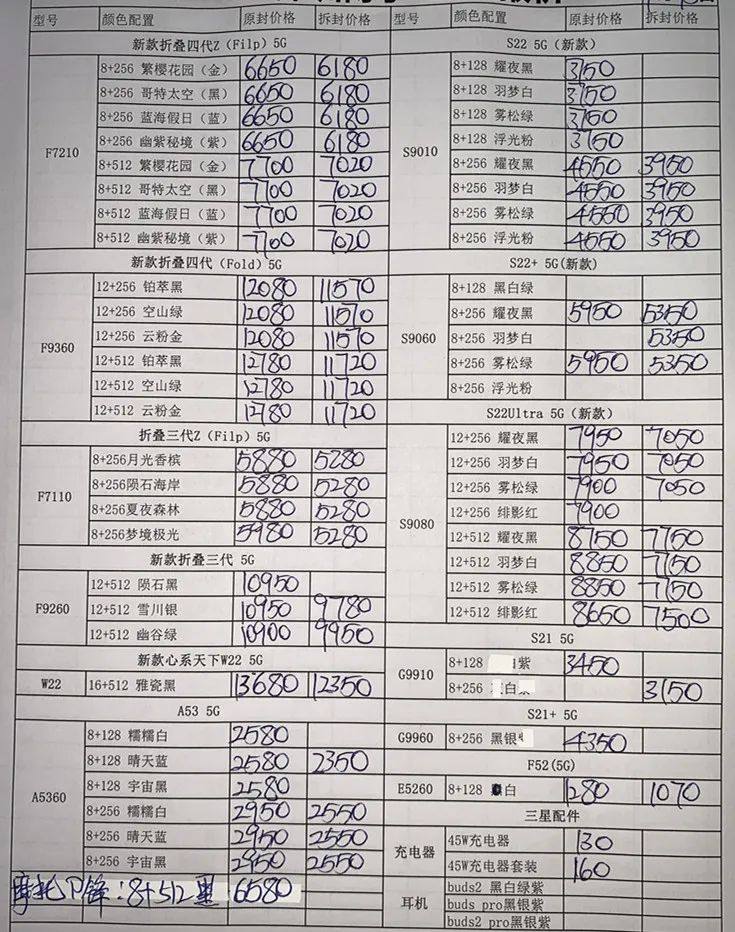 型号 颜色配置 原封价格 拆封价格
新款折叠四代Z（Filp）5G
F7210
8+256 繁樱花园（金） 6650 6180
8+256 哥特太空（黑） 6650 6180
8+256 蓝海假日（蓝） 6650 6180
8+256 幽紫秘境（紫） 6650 6180
8+512 繁樱花园（金） 7700 7020
8+512 哥特太空（黑） 7700 7020
8+512 蓝海假日（蓝） 7700 7020
8+512 幽紫秘境（紫） 7700 7020
新款折叠四代（Fold）5G
F9360
12+256 铂萃黑 12080 11570
12+256 空山绿 12080 11570
12+256 云粉金 12080 11570
12+512 铂萃黑 12780 11720
12+512 空山绿 12780 11720
12+512 云粉金 12780 11720
折叠三代Z（Filp）5G
F7110
8+256月光香槟 5880 5280
8+256陨石海岸 5880 5280
8+256夏夜森林 5880 5280
8+256梦境极光 5980 5280
新款折叠三代 5G
F9260
12+512 陨石黑 10950
12+512 雪川银 10950 9780
12+512 幽谷绿 10900 9950
新款心系天下W22 5G
W22 16+512 雅瓷黑 13680 12350
A53 5G
A5360
8+128 糯糯白 2580
8+128 晴天蓝 2580 2350
8+128 宇宙黑 2580
8+256 糯糯白 2950 2550
8+256 晴天蓝 2950 2550
8+256 宇宙黑 2950 2550
摩托P锋：8+512黑 6580
型号 颜色配置 原封价格 拆封价格
S22 5G（新款）
S9010
8+128 耀夜黑 3750
8+128 羽梦白 3750
8+128 雾松绿 3750
8+128 浮光粉 3750
8+256 耀夜黑 4550 3950
8+256 羽梦白 4550 3950
8+256 雾松绿 4550 3950
8+256 浮光粉 4550 3950
S22+ 5G(新款)
S9060
8+128 黑白绿
8+256 耀夜黑 5950 5350
8+256 羽梦白 5350
8+256 雾松绿 5950 5350
8+256 浮光粉
S22Ultra 5G（新款）
S9080
12+256 耀夜黑 7950 7050
12+256 羽梦白 7950 7050
12+256 雾松绿 7900 7050
12+256 绯影红 7900
12+512 耀夜黑 8750 7750
12+512 羽梦白 8850 7750
12+512 雾松绿 8850 7750
12+512 绯影红 8650 7500
S21 5G
G9910
8+128 紫 3450
8+256 白 3150
S21+ 5G
G9960 8+256 黑银 4350
F52(5G)
E5260 8+128 白 1280 1070
三星配件
充电器
45W充电器 130
45W充电器套装 160
耳机
buds2 黑白绿紫
buds pro黑银紫
buds pro黑银紫